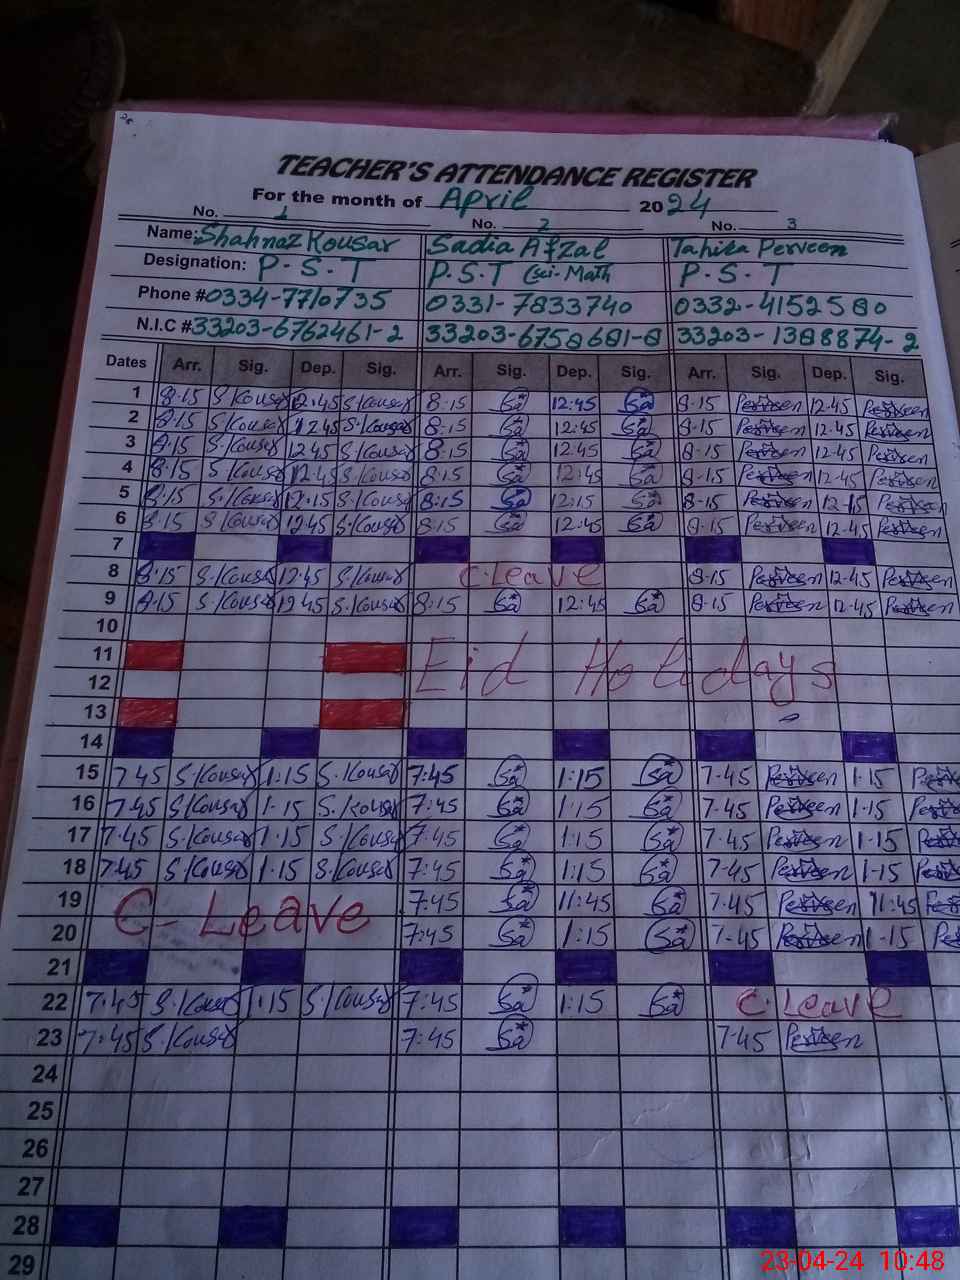 TEACHER'S ATTENDANCE REGISTER
For the month of April 2024
No. 1 No. 2 No. 3
Name: Shahnaz Kousar Sadia Afzal Tahira Perveen
Designation: P.S.T P.S.T (Sci-Math P.S.T
Phone # 0334-7710735 0331-7833740 0332-4152580
N.I.C # 33203-6762461-2 33203-6758681-8 33203-1388874-2
Dates Arr. Sig. Dep. Sig. Arr. Sig. Dep. Sig. Arr. Sig. Dep. Sig.
1 8.15 S.Kousar 12.45 S.Kousar 8.15 Sa 12:45 Sa 8-15 Perveen 12.45 Perveen
2 8.15 S.Kousar 12.45 S.Kousar 8.15 Sa 12:45 Sa 8-15 Perveen 12.45 Perveen
3 8.15 S.Kousar 12.45 S.Kousar 8:15 Sa 12.45 Sa 8-15 Perveen 12-45 Perveen
4 8.15 S.Kousar 12.45 S.Kousar 8:15 Sa 12:45 Sa 8-15 Perveen 12-45 Perveen
5 8.15 S.Kousar 12.15 S.Kousar 8:15 Sa 12:15 Sa 8-15 Perveen 12-15 Perveen
6 8.15 S.Kousar 12.45 S.Kousar 8:15 Sa 12:45 Sa 8-15 Perveen 12-45 Perveen
7
8 8.15 S.Kousar 12.45 S.Kousar C.Leave 8-15 Perveen 12-45 Perveen
9 8.15 S.Kousar 12.45 S.Kousar 8:15 Sa 12:45 Sa 8-15 Perveen 12-45 Perveen
10
11 Eid Holidays
12
13
14
15 7.45 S.Kousar 1:15 S.Kousar 7:45 Sa 1:15 Sa 7-45 Perveen 1-15
16 7.45 S.Kousar 1.15 S.Kousar 7:45 Sa 1:15 Sa 7-45 Perveen 1-15
17 7.45 S.Kousar 1.15 S.Kousar 7:45 Sa 1:15 Sa 7-45 Perveen 1-15
18 7.45 S.Kousar 1.15 S.Kousar 7:45 Sa 1:15 Sa 7-45 Perveen 1-15
19 C-Leave 7:45 Sa 11:45 Sa 7-45 Perveen 11:45
20 7:45 Sa 1:15 Sa 7-45 Perveen 1-15
21
22 7.45 S.Kousar 1.15 S.Kousar 7:45 Sa 1:15 Sa C.Leave
23 7.45 S.Kousar 7:45 Sa 7-45 Perveen
24
25
26
27
28
29
23-04-24 10:48